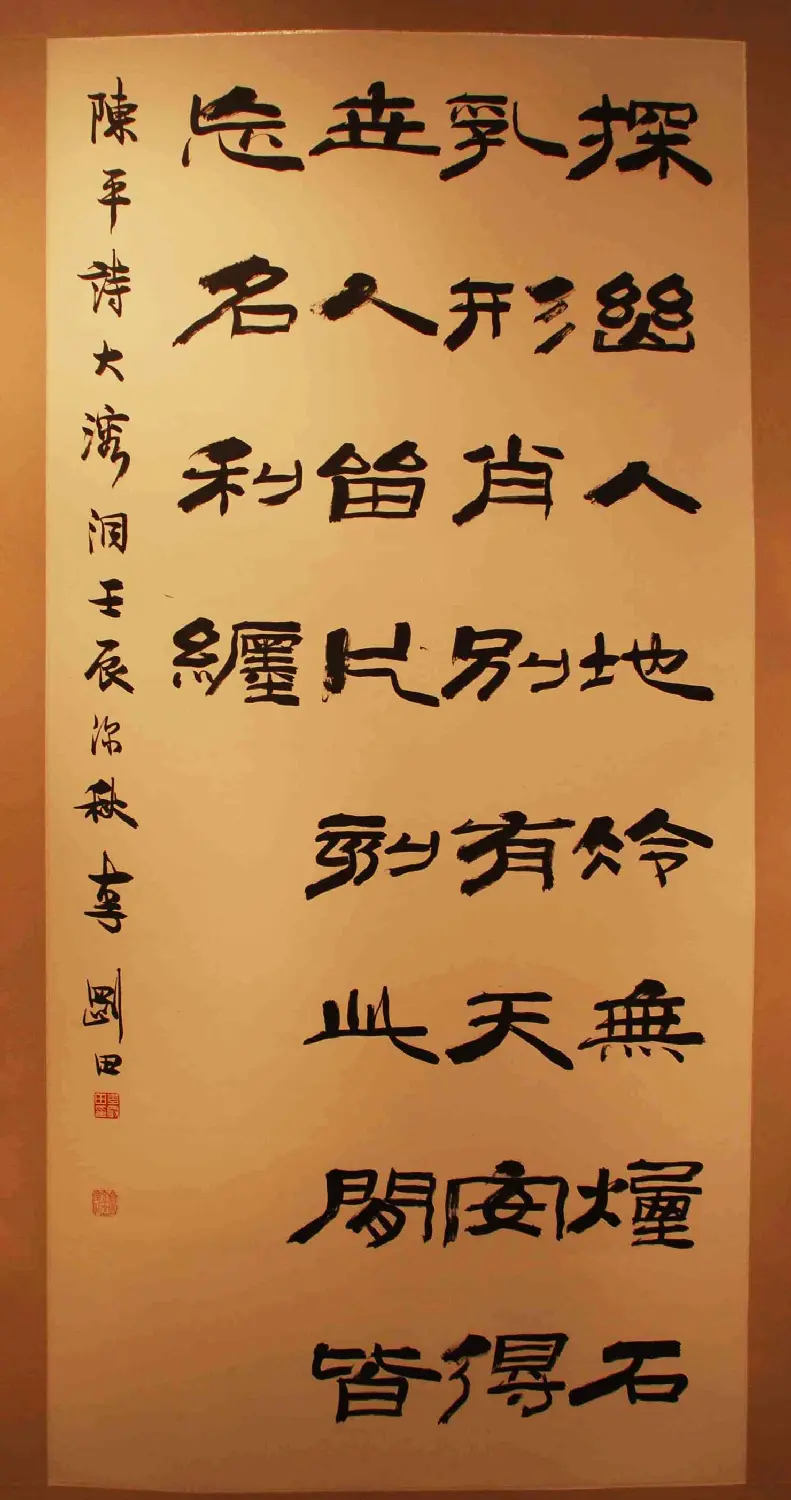 探幽入地冷無煙石
乳形肖別有天安得
世人留片刻此間皆
忘名利纏
陳平詩大灣洞壬辰深秋李剛田